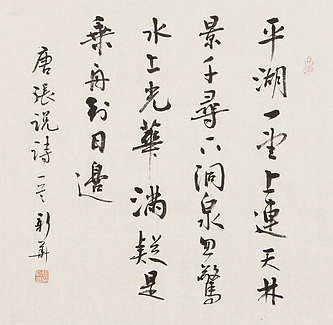 平湖一望上連天林
景千尋下洞泉忽驚
水上光華滿疑是
乘舟到日邊
唐張説詩一首